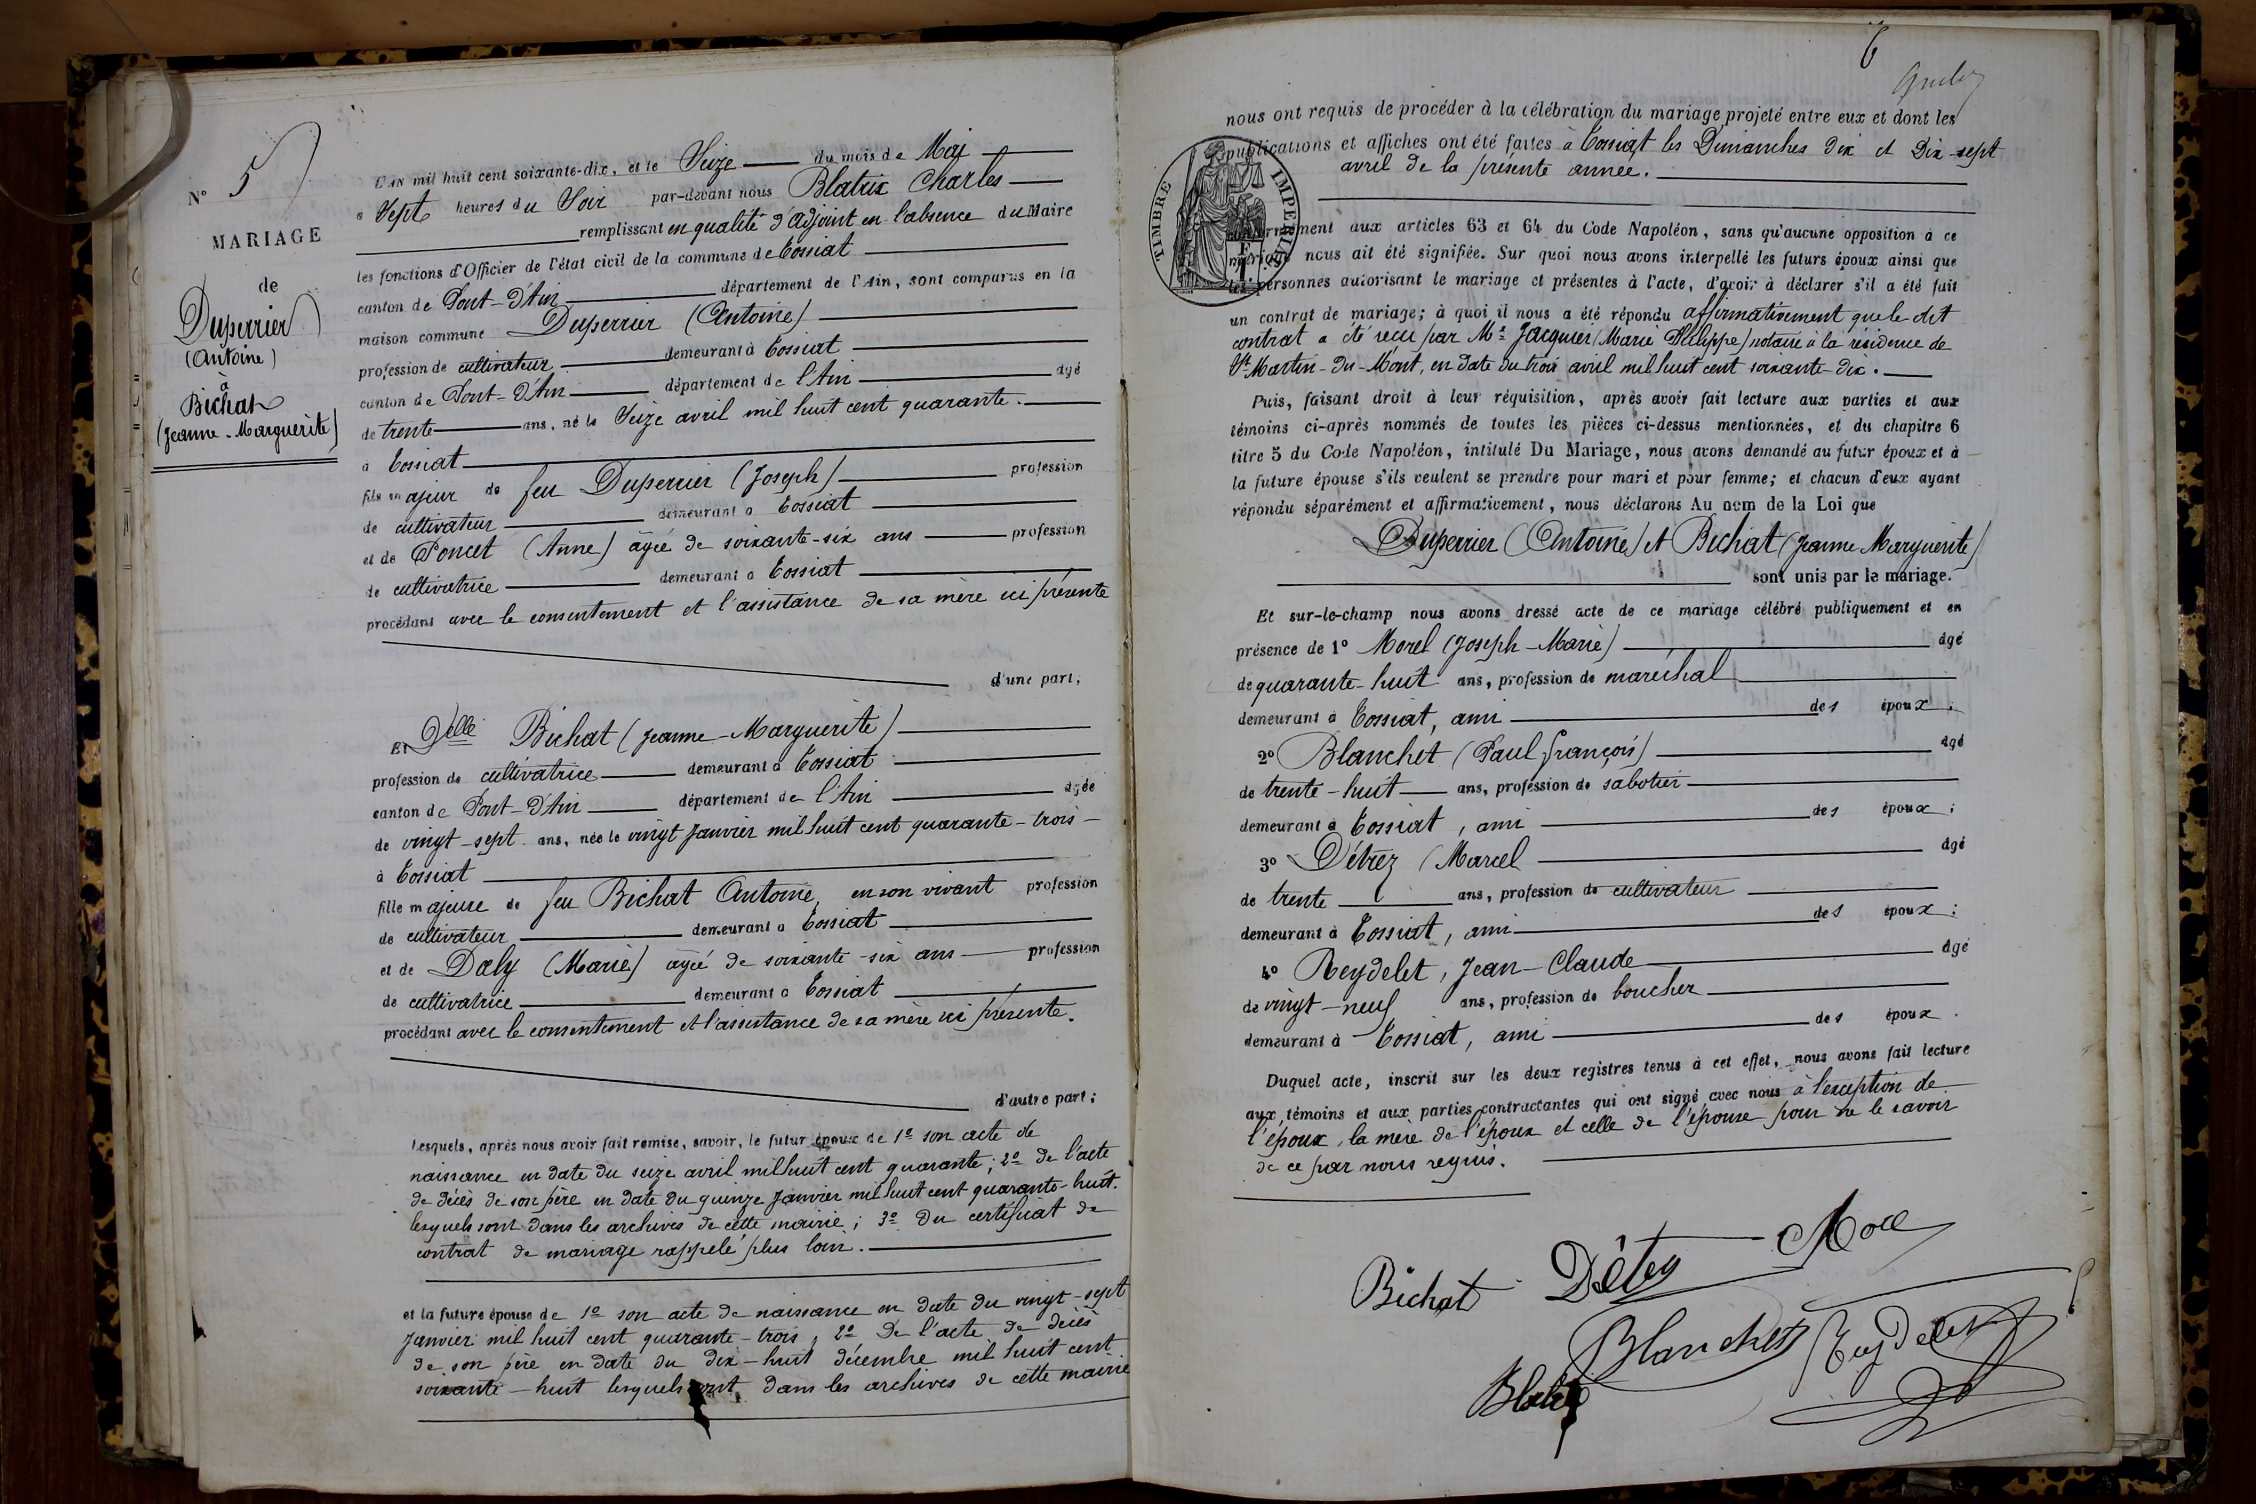 N° 5
MARIAGE
de
Duperrier
(Antoine)
à
Bichat
(Jeanne-Marguerite)
L'AN mil huit cent soixante-dix, et le Seize du mois de Mai
à Sept heures du Soir par-devant nous Blatrix Charles
remplissant en qualité d'adjoint en l'absence du Maire
les fonctions d'Officier de l'état civil de la commune de Tossiat
canton de Pont-d'Ain département de l'Ain, sont comparus en la
maison commune Duperrier (Antoine)
profession de cultivateur demeurant à Tossiat
canton de Pont-d'Ain département de l'Ain âgé
de trente ans, né le Seize avril mil huit cent quarante.
à Tossiat
fils majeur de feu Duperrier (Joseph) profession
de cultivateur demeurant à Tossiat
et de Poncet (Anne) âgée de soixante-six ans profession
de cultivatrice demeurant à Tossiat
procédant avec le consentement et l'assistance de sa mère ici présente
d'une part,
Et Delle Bichat (Jeanne-Marguerite)
profession de cultivatrice demeurant à Tossiat
canton de Pont-d'Ain département de l'Ain âgée
de vingt-sept ans, née le vingt Janvier mil huit cent quarante-trois
à Tossiat
fille majeure de feu Bichat Antoine, en son vivant profession
de cultivateur demeurant à Tossiat
et de Daly (Marie) âgé de soixante-six ans profession
de cultivatrice demeurant à Tossiat
procédant avec le consentement et l'assistance de sa mère ici présente.
d'autre part;
Lesquels, après nous avoir fait remise, savoir, le futur époux de 1° son acte de
naissance en date du seize avril mil huit cent quarante; 2° de l'acte
de décès de son père en date du quinze Janvier mil huit cent quarante-huit.
lesquels sont dans les archives de cette mairie; 3° du certificat de
contrat de mariage rappelé plus loin.
et la future épouse de 1° son acte de naissance en date du vingt-sept
Janvier mil huit cent quarante-trois, 2° de l'acte de décès
de son père en date du dix-huit décembre mil huit cent
soixante-huit lesquels sont dans les archives de cette mairie
6
nous ont requis de procéder à la célébration du mariage projeté entre eux et dont les
publications et affiches ont été faites à Tossiat les Dimanches dix et dix-sept
avril de la présente année.
TIMBRE IMPERIAL
conformément aux articles 63 et 64 du Code Napoléon, sans qu'aucune opposition à ce
mariage nous ait été signifiée. Sur quoi nous avons interpellé les futurs époux ainsi que
les personnes autorisant le mariage et présentes à l'acte, d'avoir à déclarer s'il a été fait
un contrat de mariage; à quoi il nous a été répondu affirmativement que le dit
contrat a été reçu par Me Jacquier (Marie Philippe) notaire à la résidence de
St Martin-du-Mont, en date du trois avril mil huit cent soixante-dix.
Puis, faisant droit à leur réquisition, après avoir fait lecture aux parties et aux
témoins ci-après nommés de toutes les pièces ci-dessus mentionnées, et du chapitre 6
titre 5 du Code Napoléon, intitulé Du Mariage, nous avons demandé au futur époux et à
la future épouse s'ils veulent se prendre pour mari et pour femme; et chacun d'eux ayant
répondu séparément et affirmativement, nous déclarons Au nom de la Loi que
Duperrier (Antoine) et Bichat (Jeanne Marguerite)
sont unis par le mariage.
Et sur-le-champ nous avons dressé acte de ce mariage célébré publiquement et en
présence de 1° Morel (Joseph-Marie) âgé
de quarante-huit ans, profession de maréchal
demeurant à Tossiat, ami des époux;
2° Blanchet (Paul François) âgé
de trente-huit ans, profession de sabotier
demeurant à Tossiat, ami des époux;
3° Détrez (Marcel âgé
de trente ans, profession de cultivateur
demeurant à Tossiat, ami des époux;
4° Reydelet, Jean-Claude âgé
de vingt-neuf ans, profession de boucher
demeurant à Tossiat, ami des époux.
Duquel acte, inscrit sur les deux registres tenus à cet effet, nous avons fait lecture
aux témoins et aux parties contractantes qui ont signé avec nous à l'exception de
l'époux, la mère de l'époux et celle de l'épouse pour ne le savoir
de ce par nous requis.
Bichat Détrez Morel
Blanchet Reydelet
Blatrix